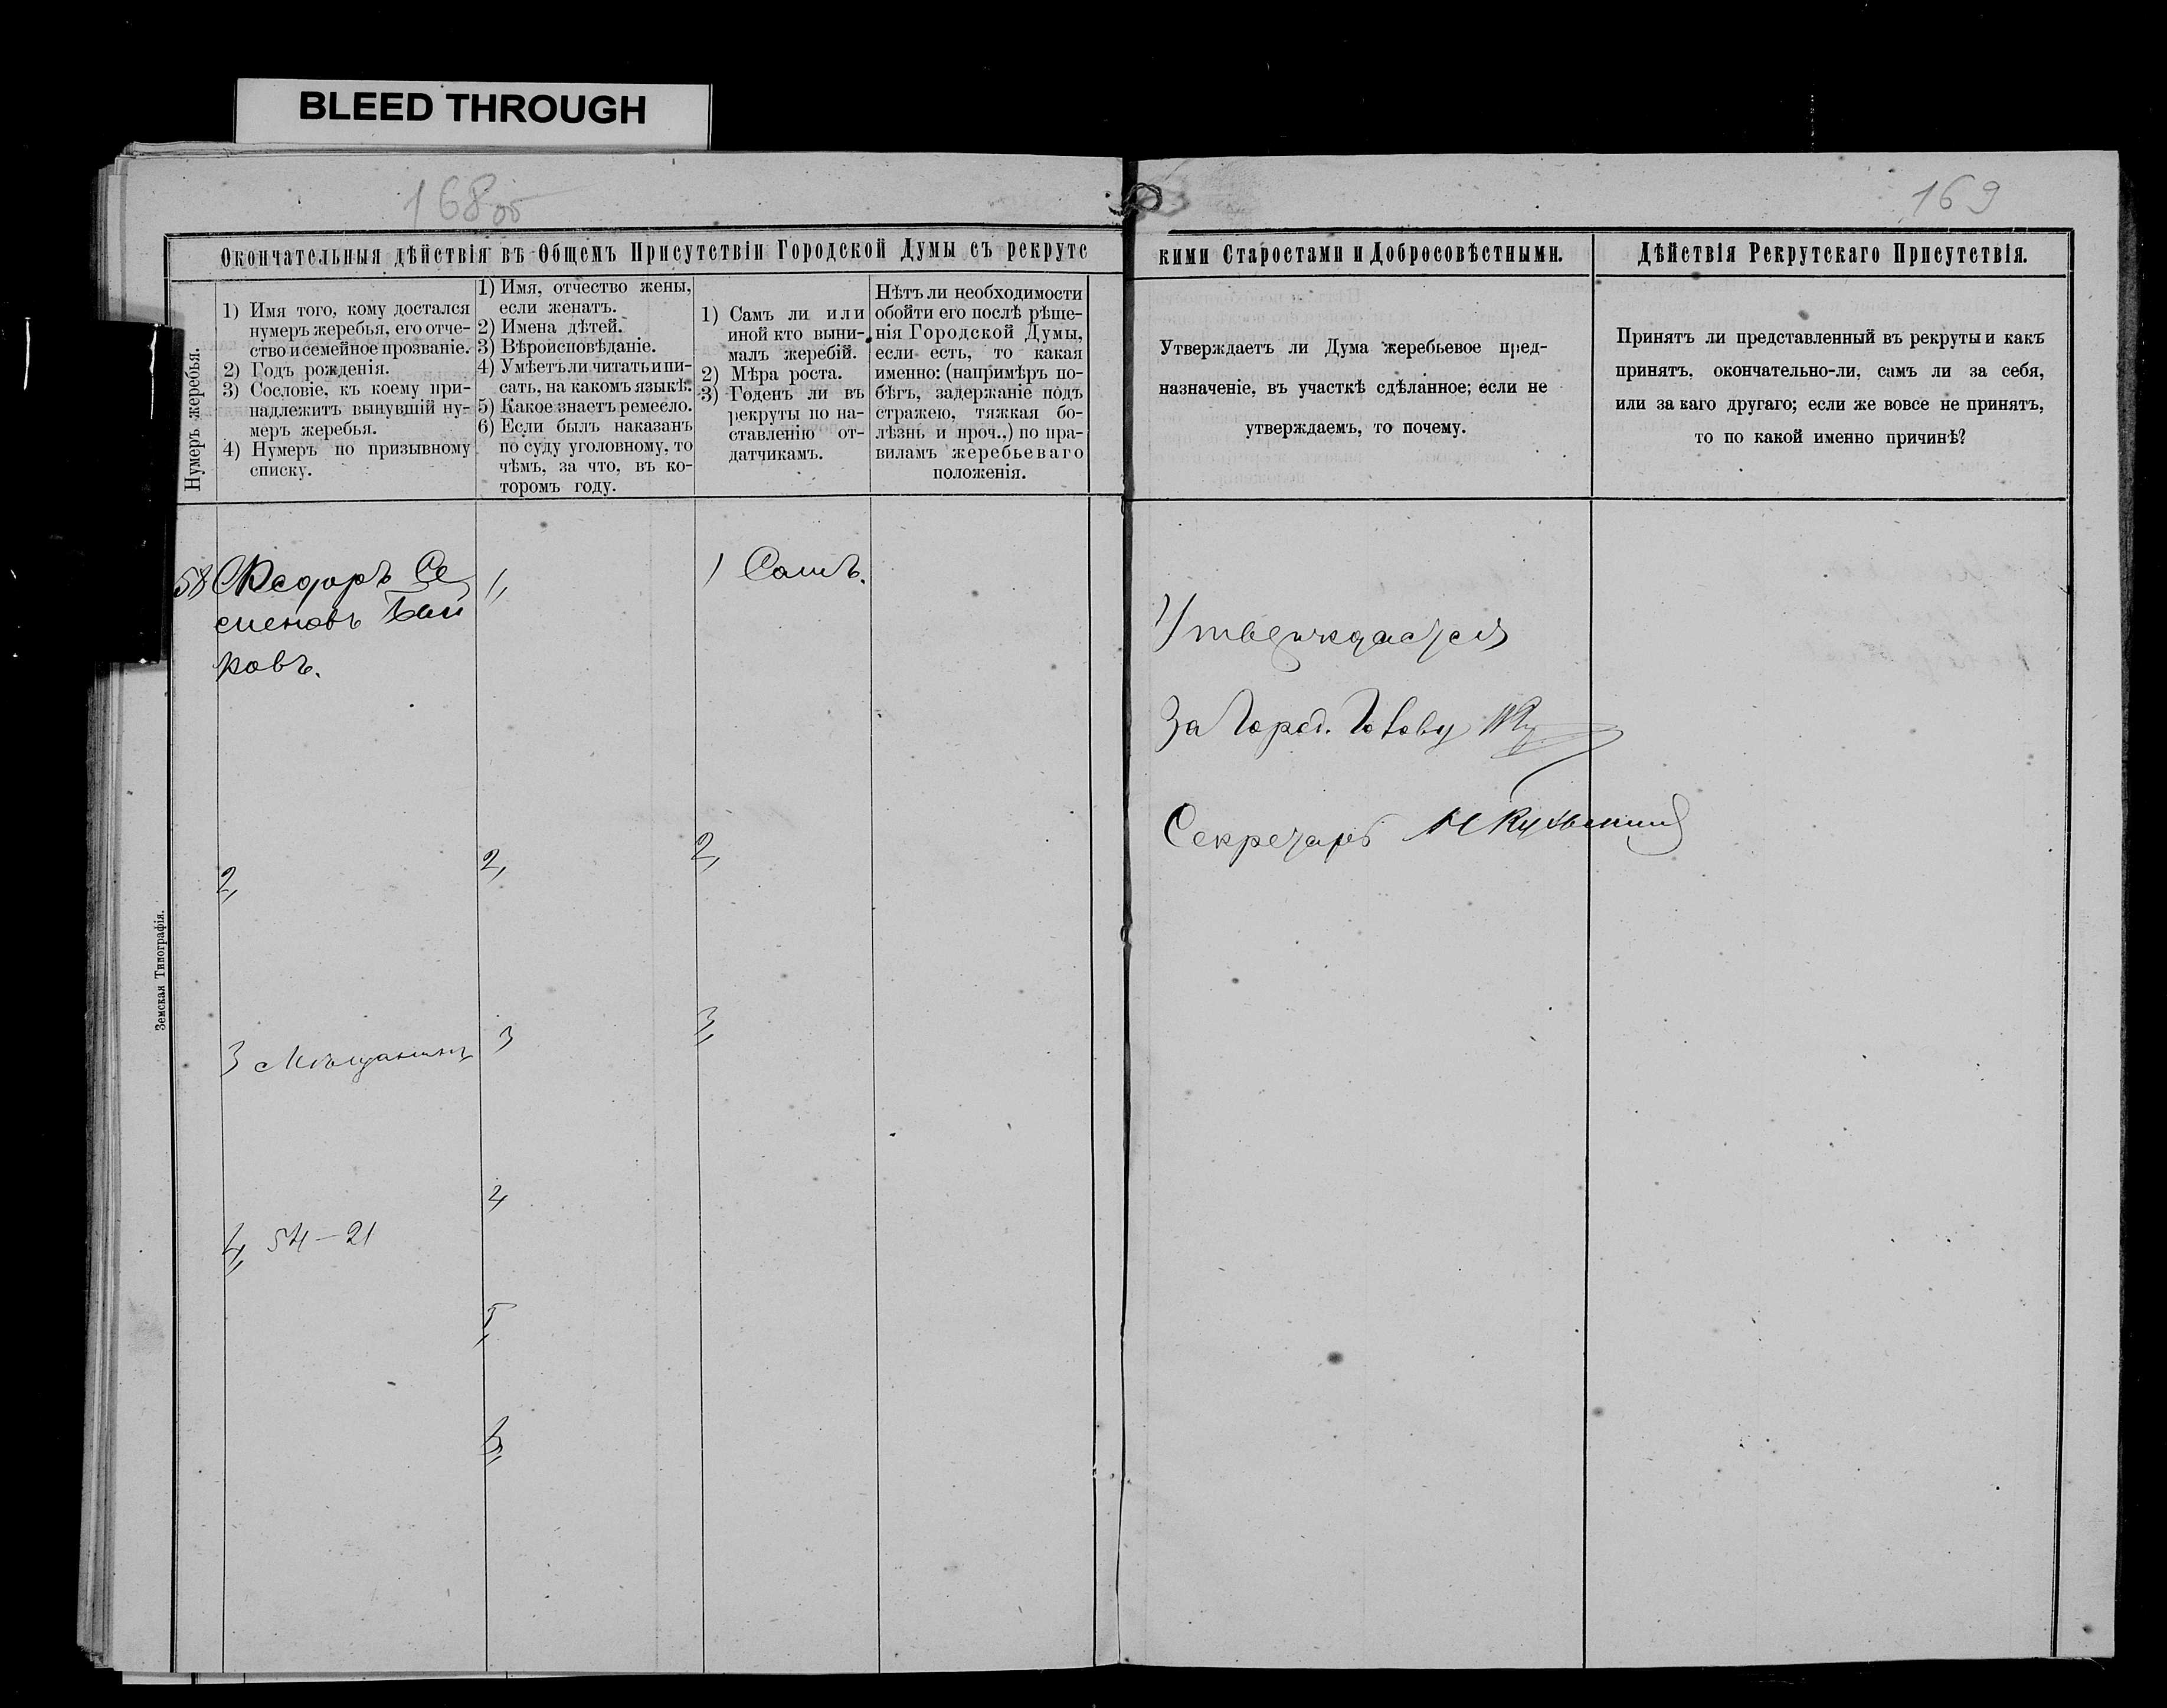 BLEED THROUGH
168 об
169
Окончательныя дѣйствія въ Общемъ Присутствіи Городской Думы съ рекрутс
Нумеръ жеребья.
1) Имя того, кому достался
нумеръ жеребья, его отче-
ство и семейное прозваніе.
2) Годъ рожденія.
3) Сословіе, къ коему при-
надлежитъ вынувшій ну-
меръ жеребья.
4) Нумеръ по призывному
списку.
1) Имя, отчество жены,
если женатъ.
2) Имена дѣтей.
3) Вѣроисповѣданіе.
4) Умѣетъ ли читать и пи-
сать, на какомъ языкѣ.
5) Какое знаетъ ремесло.
6) Если былъ наказанъ
по суду уголовному, то
чѣмъ, за что, въ ко-
торомъ году.
1) Самъ ли или
иной кто выни-
малъ жеребій.
2) Мѣра роста.
3) Годенъ ли въ
рекруты по на-
ставленію от-
датчикамъ.
Нѣтъ ли необходимости
обойти его послѣ рѣше-
нія Городской Думы,
если есть, то какая
именно: (напримѣръ по-
бѣгъ, задержаніе подъ
стражею, тяжкая бо-
лѣзнь и проч.,) по пра-
виламъ жеребьеваго
положенія.
58 Федоръ Се
меновъ
ковъ.
2,
3 Мѣщанинъ
4, 54-21
1,
2,
3
4
5,
6,
1 Самъ.
2,
3,
Земская Типографія.
кими Старостами и Добросовѣстными.
Дѣйствія Рекрутскаго Присутствія.
Утверждаетъ ли Дума жеребьевое пред-
назначеніе, въ участкѣ сдѣланное; если не
утверждаемъ, то почему.
Принятъ ли представленный въ рекруты и какъ
принятъ, окончательно-ли, самъ ли за себя,
или за каго другаго; если же вовсе не принятъ,
то по какой именно причинѣ?
Утверждается
За Город. Голову
Секретарь